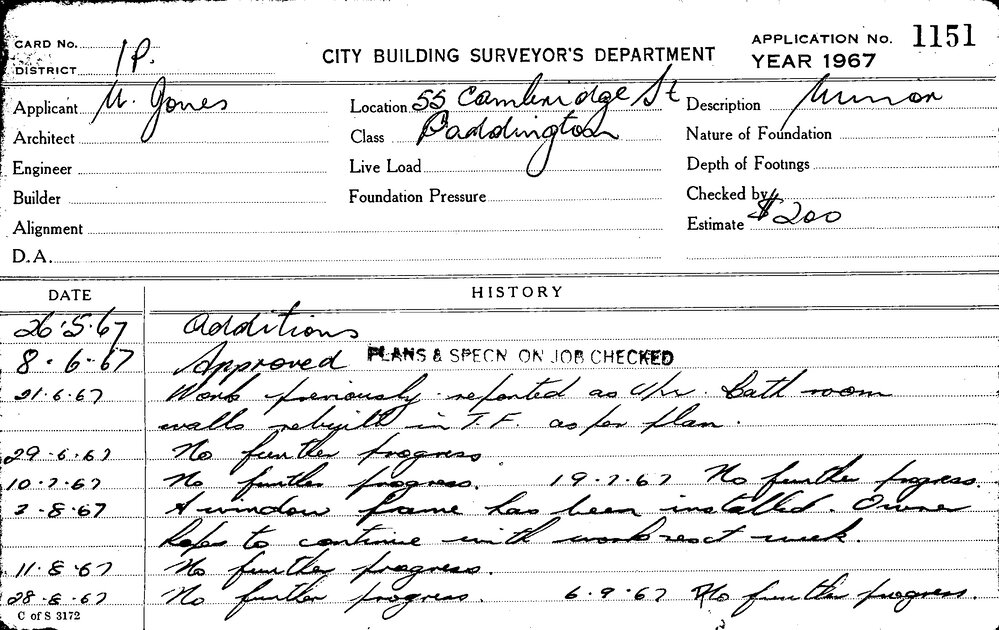 CARD No. 1P.
DISTRICT
CITY BUILDING SURVEYOR'S DEPARTMENT
APPLICATION No. 1151
YEAR 1967
Applicant M. Jones
Location 55 Cambridge St
Description Minor
Architect
Class Paddington
Nature of Foundation
Engineer
Live Load
Depth of Footings
Builder
Foundation Pressure
Checked by
Alignment
Estimate $200
D.A.
DATE HISTORY
26.5.67 Additions
8.6.67 Approved PLANS & SPECN ON JOB CHECKED
21.6.67 Work previously reported as U/W. Bath room
walls rebuilt in T.F. as per plan.
29.6.67 No further progress
10.7.67 No further progress. 19.7.67 No further progress.
2.8.67 A window frame has been installed. Owner
hopes to continue with work next week.
11.8.67 No further progress.
28.8.67 No further progress. 6.9.67 No further progress.
C of S 3172